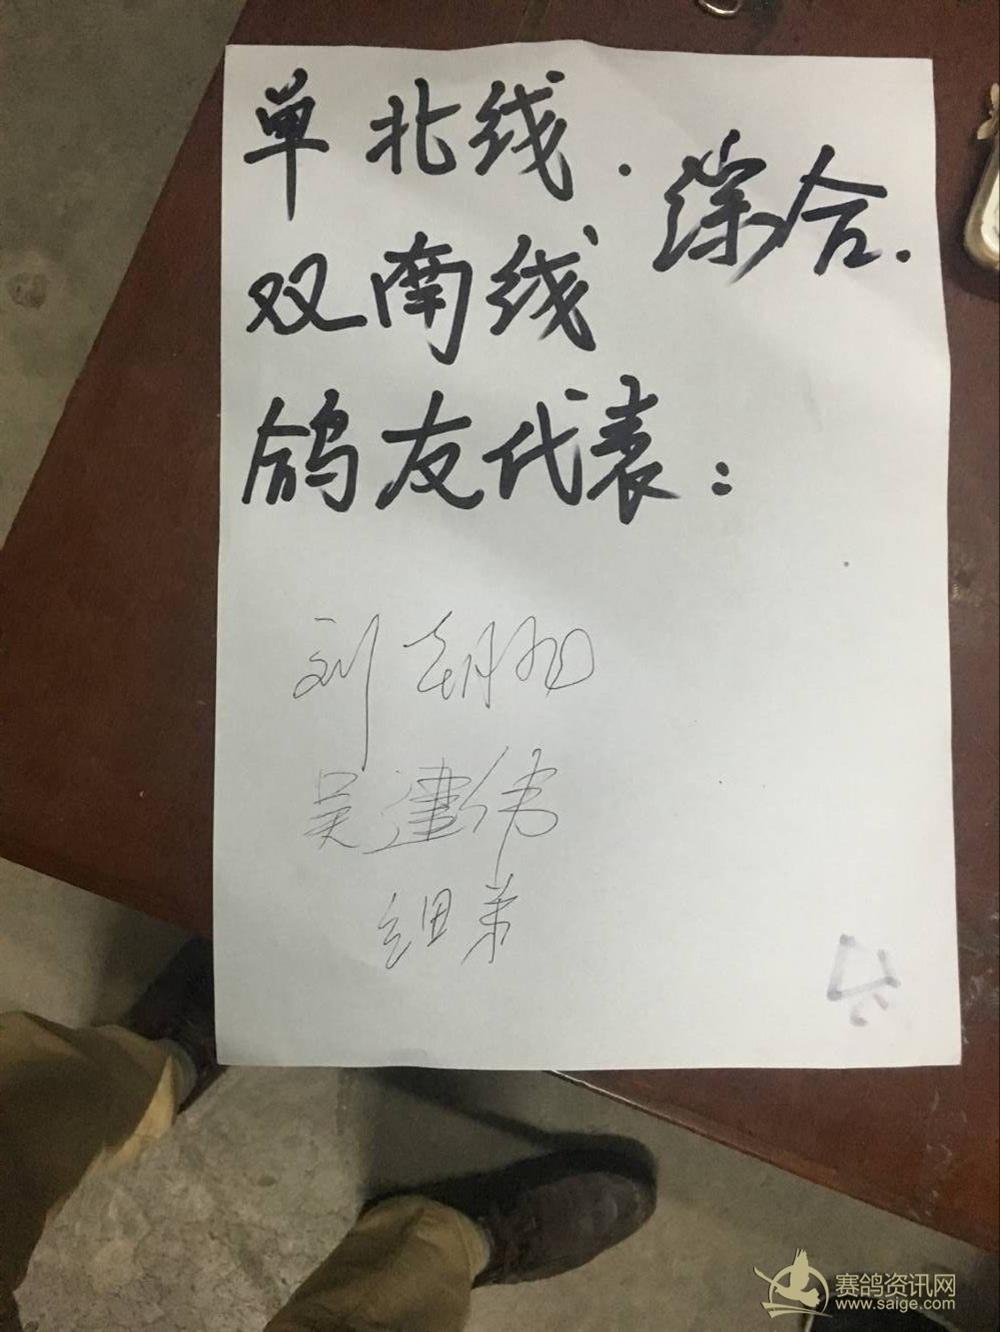 单北线. 综合.
双南线
鸽友代表:
刘朝阳
吴建伟
赛鸽资讯网
www.saige.com